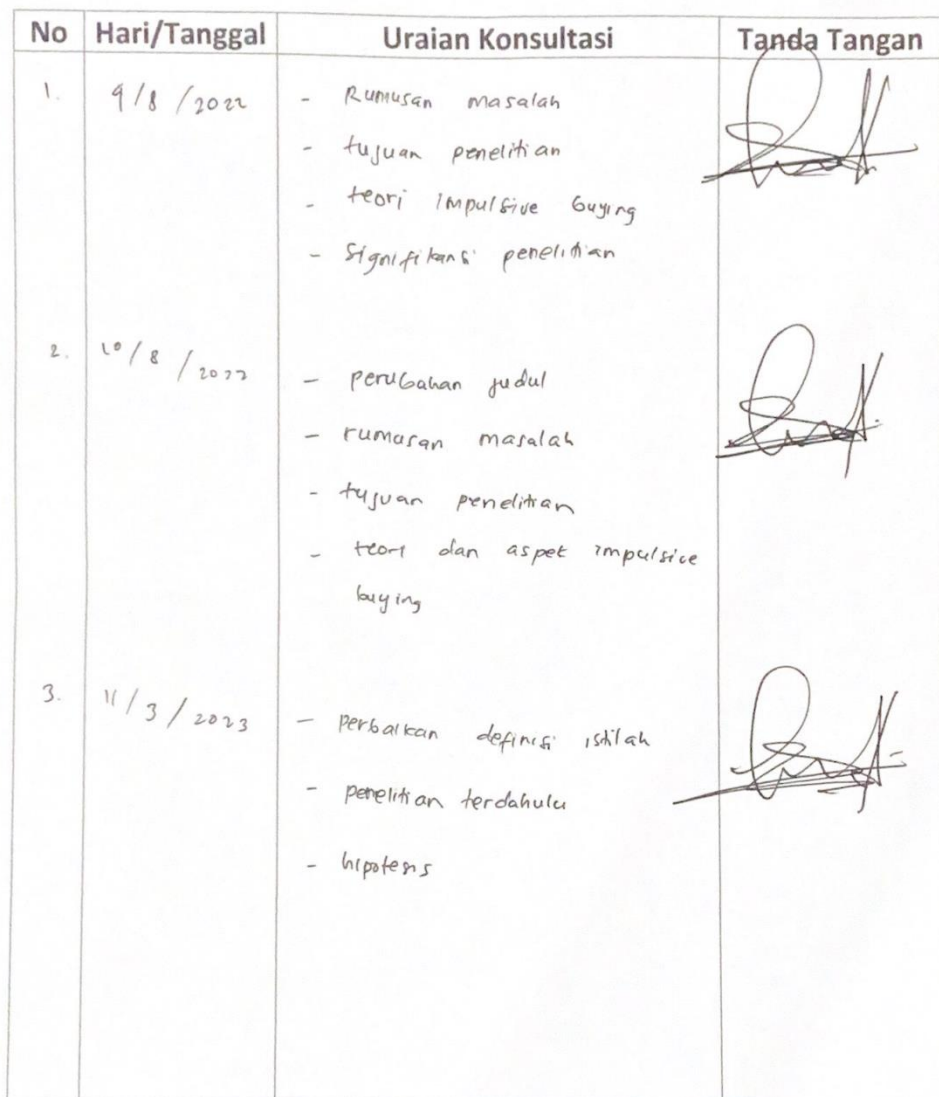 No Hari/Tanggal Uraian Konsultasi Tanda Tangan
1. 9/8/2022 - Rumusan masalah
- tujuan penelitian
- teori impulsive buying
- Signifikansi penelitian
2. 10/8/2022 - perubahan judul
- rumusan masalah
- tujuan penelitian
- teori dan aspek impulsive
buying
3. 11/3/2023 - perbaikan definisi istilah
- penelitian terdahulu
- hipotesis